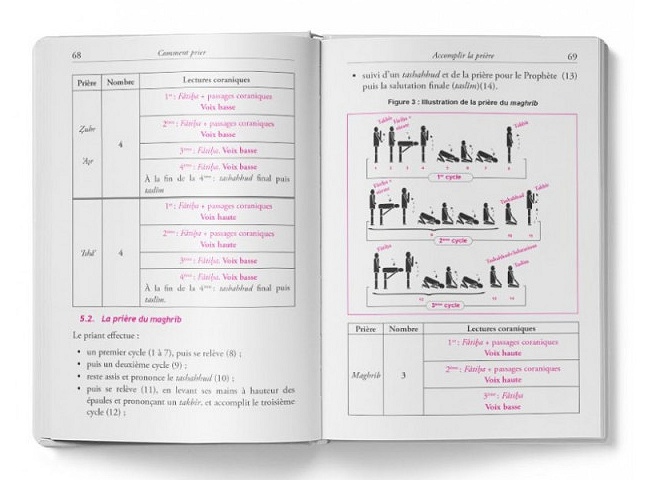 68
Comment prier
Prière Nombre Lectures coraniques
Zuhr
'Aṣr
4
1re : Fâtiḥa + passages coraniques
Voix basse
2ème : Fâtiḥa + passages coraniques
Voix basse
3ème : Fâtiḥa. Voix basse
4ème : Fâtiḥa. Voix basse
À la fin de la 4ème : tashahhud final puis
taslîm
'Ishâ'
4
1re : Fâtiḥa + passages coraniques
Voix haute
2ème : Fâtiḥa + passages coraniques
Voix haute
3ème : Fâtiḥa. Voix basse
4ème : Fâtiḥa. Voix basse
À la fin de la 4ème : tashahhud final puis
taslîm.
5.2. La prière du maghrib
Le priant effectue :
• un premier cycle (1 à 7), puis se relève (8) ;
• puis un deuxième cycle (9) ;
• reste assis et prononce le tashahhud (10) ;
• puis se relève (11), en levant ses mains à hauteur des
épaules et prononçant un takbîr, et accomplit le troisième
cycle (12) ;
Accomplir la prière
69
• suivi d'un tashahhud et de la prière pour le Prophète (13)
puis la salutation finale (taslîm)(14).
Figure 3 : Illustration de la prière du maghrib
Takbîr
Fâtiḥa +
Takbîr
1er cycle
Fâtiḥa +
Tashahhud
Takbîr
2ème cycle
Fâtiḥa
Taslîm
3ème cycle
Prière Nombre Lectures coraniques
Maghrib
3
1re : Fâtiḥa + passages coraniques
Voix haute
2ème : Fâtiḥa + passages coraniques
Voix haute
3ème : Fâtiḥa
Voix basse